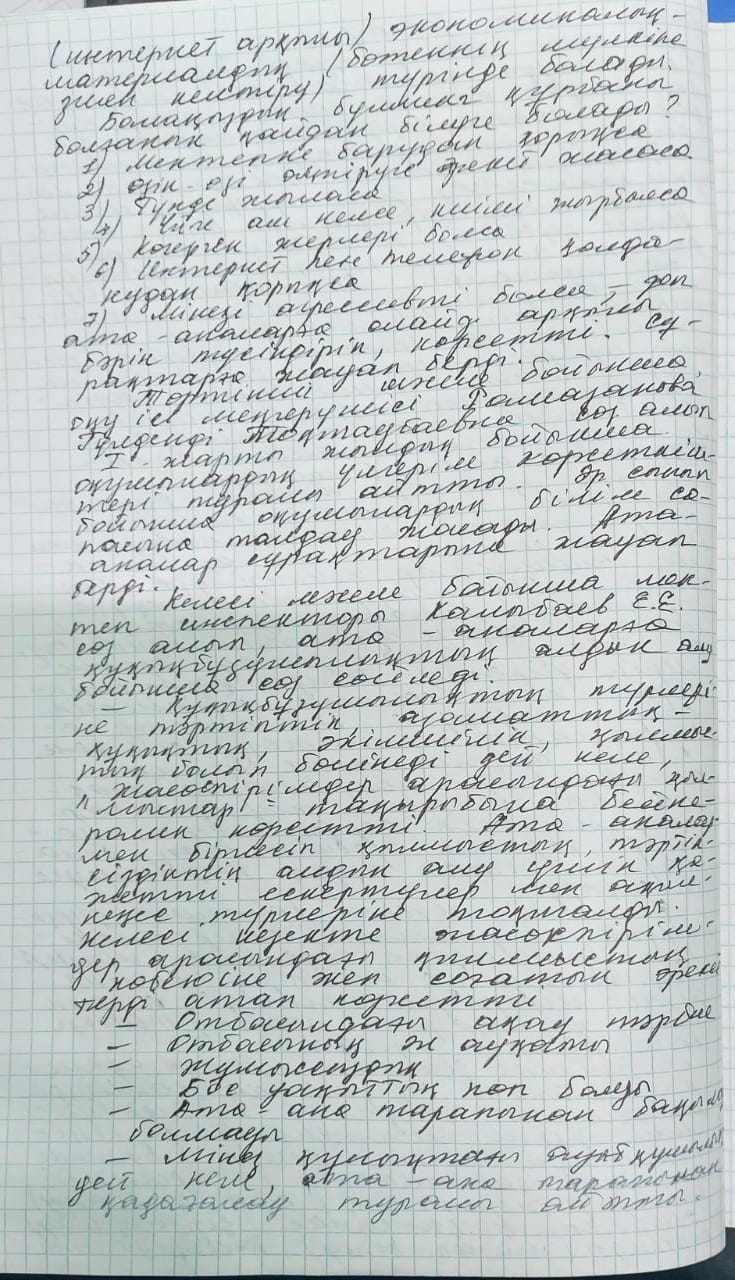 (интернет арқылы) экономикалық-
материалдық (бөтеннің мүлкіне
зиян келтіру) түрінде болады.
Балаңыздың буллинг құрбаны
болғанын қайдан білуге болады?
1) Мектепке барудан қорықса
2) Өзін-өзі өлтіруге әрекет жасаса
3) Түнде жыласа
4) Үйге аш келсе, киімі жыртылса
5) Көгерген жерлері болса
6) Интернет пен телефон қолда-
нудан қорықса
7) Мінезі агрессивті болса, – деп
ата-аналарға слайд арқылы
бәрін түсіндіріп, көрсетті. Сұ-
рақтарға жауап берді.
Төртінші мәселе бойынша,
оқу ісі меңгерушісі Рамазанова
Гүлденді Тоқтаубаевна сөз алып
I-жарты жылдық бойынша
оқушылардың үлгерім көрсеткіш-
тері туралы айтты. Әр сынып
бойынша оқушылардың білім са-
пасына талдау жасады. Ата-
аналар сұрақтарына жауап
берді.
Келесі мәселе бойынша мек-
теп инспекторы Калыбаев Е.Е.
сөз алып, ата-аналарға
құқықбұзушылықтың алдын алу
бойынша сөз сөйледі.
– Құқықбұзушылықтың түрлері-
не тәртіптік, азаматтық-
құқықтық, әкімшілік, қылмыс-
тық болып бөлінеді дей келе,
"Жасөспірімдер арасындағы қыл-
мыстар" тақырыбына бейне-
ролик көрсетті. Ата-аналар
мен бірлесіп қылмыстың, тәртіп-
сіздіктің алдын алу үшін қа-
жетті ескертулер мен ақыл-
кеңес түрлеріне тоқталды.
Келесі кезекте жасөспірім-
дер арасындағы қылмыстың
көбеюіне жеп соғатын әрекет
терді атап көрсетті
– Отбасындағы ақау тәрбие
– Отбасының әл ауқаты
– Жұмыссыздық
– Бос уақыттың көп болуы
– Ата-ана тарапынан бақылау
болмауы
– Мінез құлықтағы ауытқушылық
дей келе, ата-ана тарапынан
қадағалау туралы айтты.